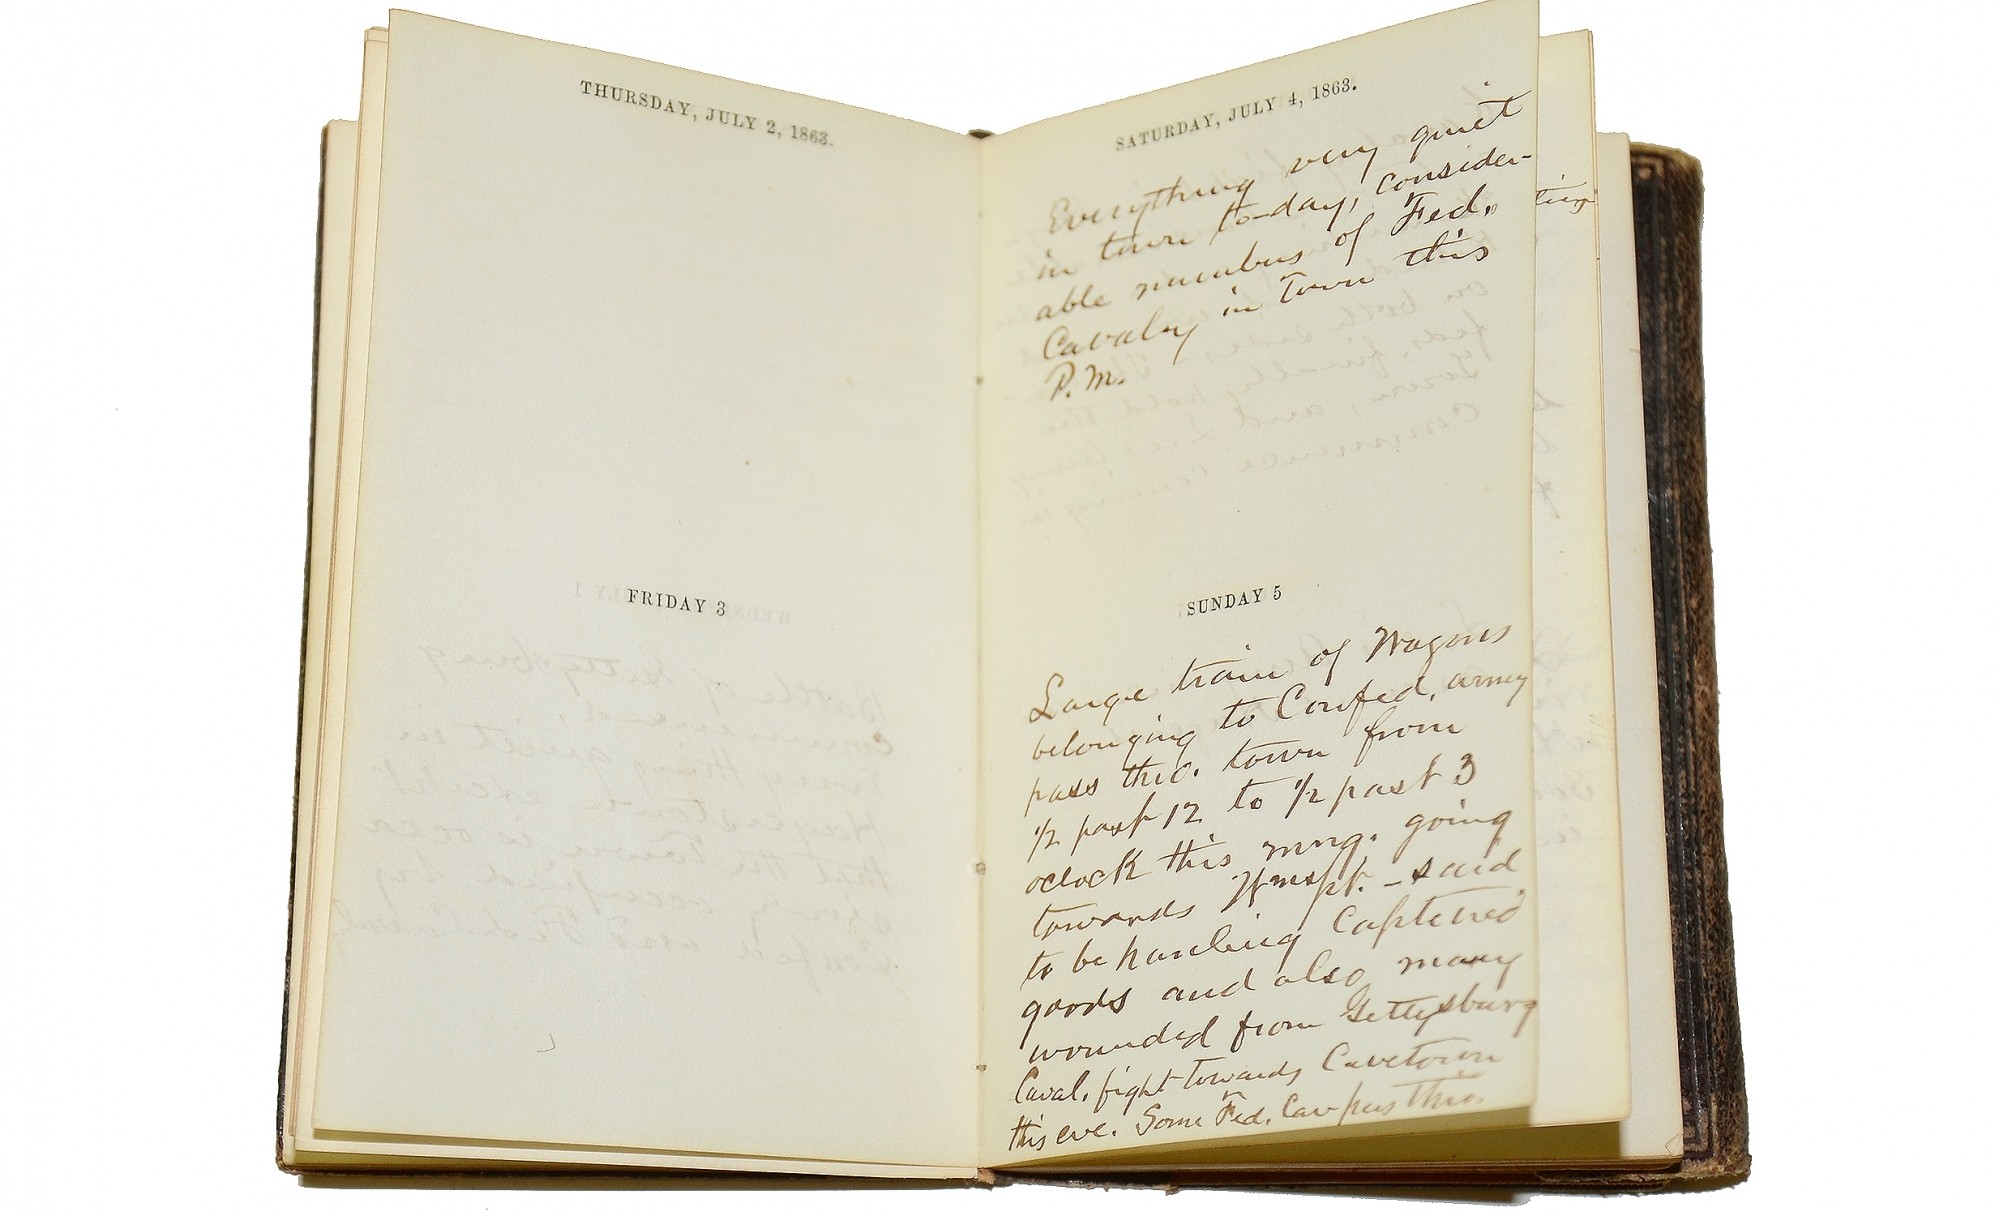 THURSDAY, JULY 2, 1863.
FRIDAY 3
SATURDAY, JULY 4, 1863.
Everything very quiet
in town to-day, consider-
able numbers of Fed.
Cavalry in Town this
P.M.
SUNDAY 5
Large train of Wagons
belonging to Confed. army
pass thro. town from
1/2 past 12 to 1/2 past 3
oclock this mng. going
towards Wmspt. - said
to be hauling captured
goods and also many
wounded from Gettysburg
Caval. fight towards Cavetown
this eve. Some Fed. Cav pass thro.